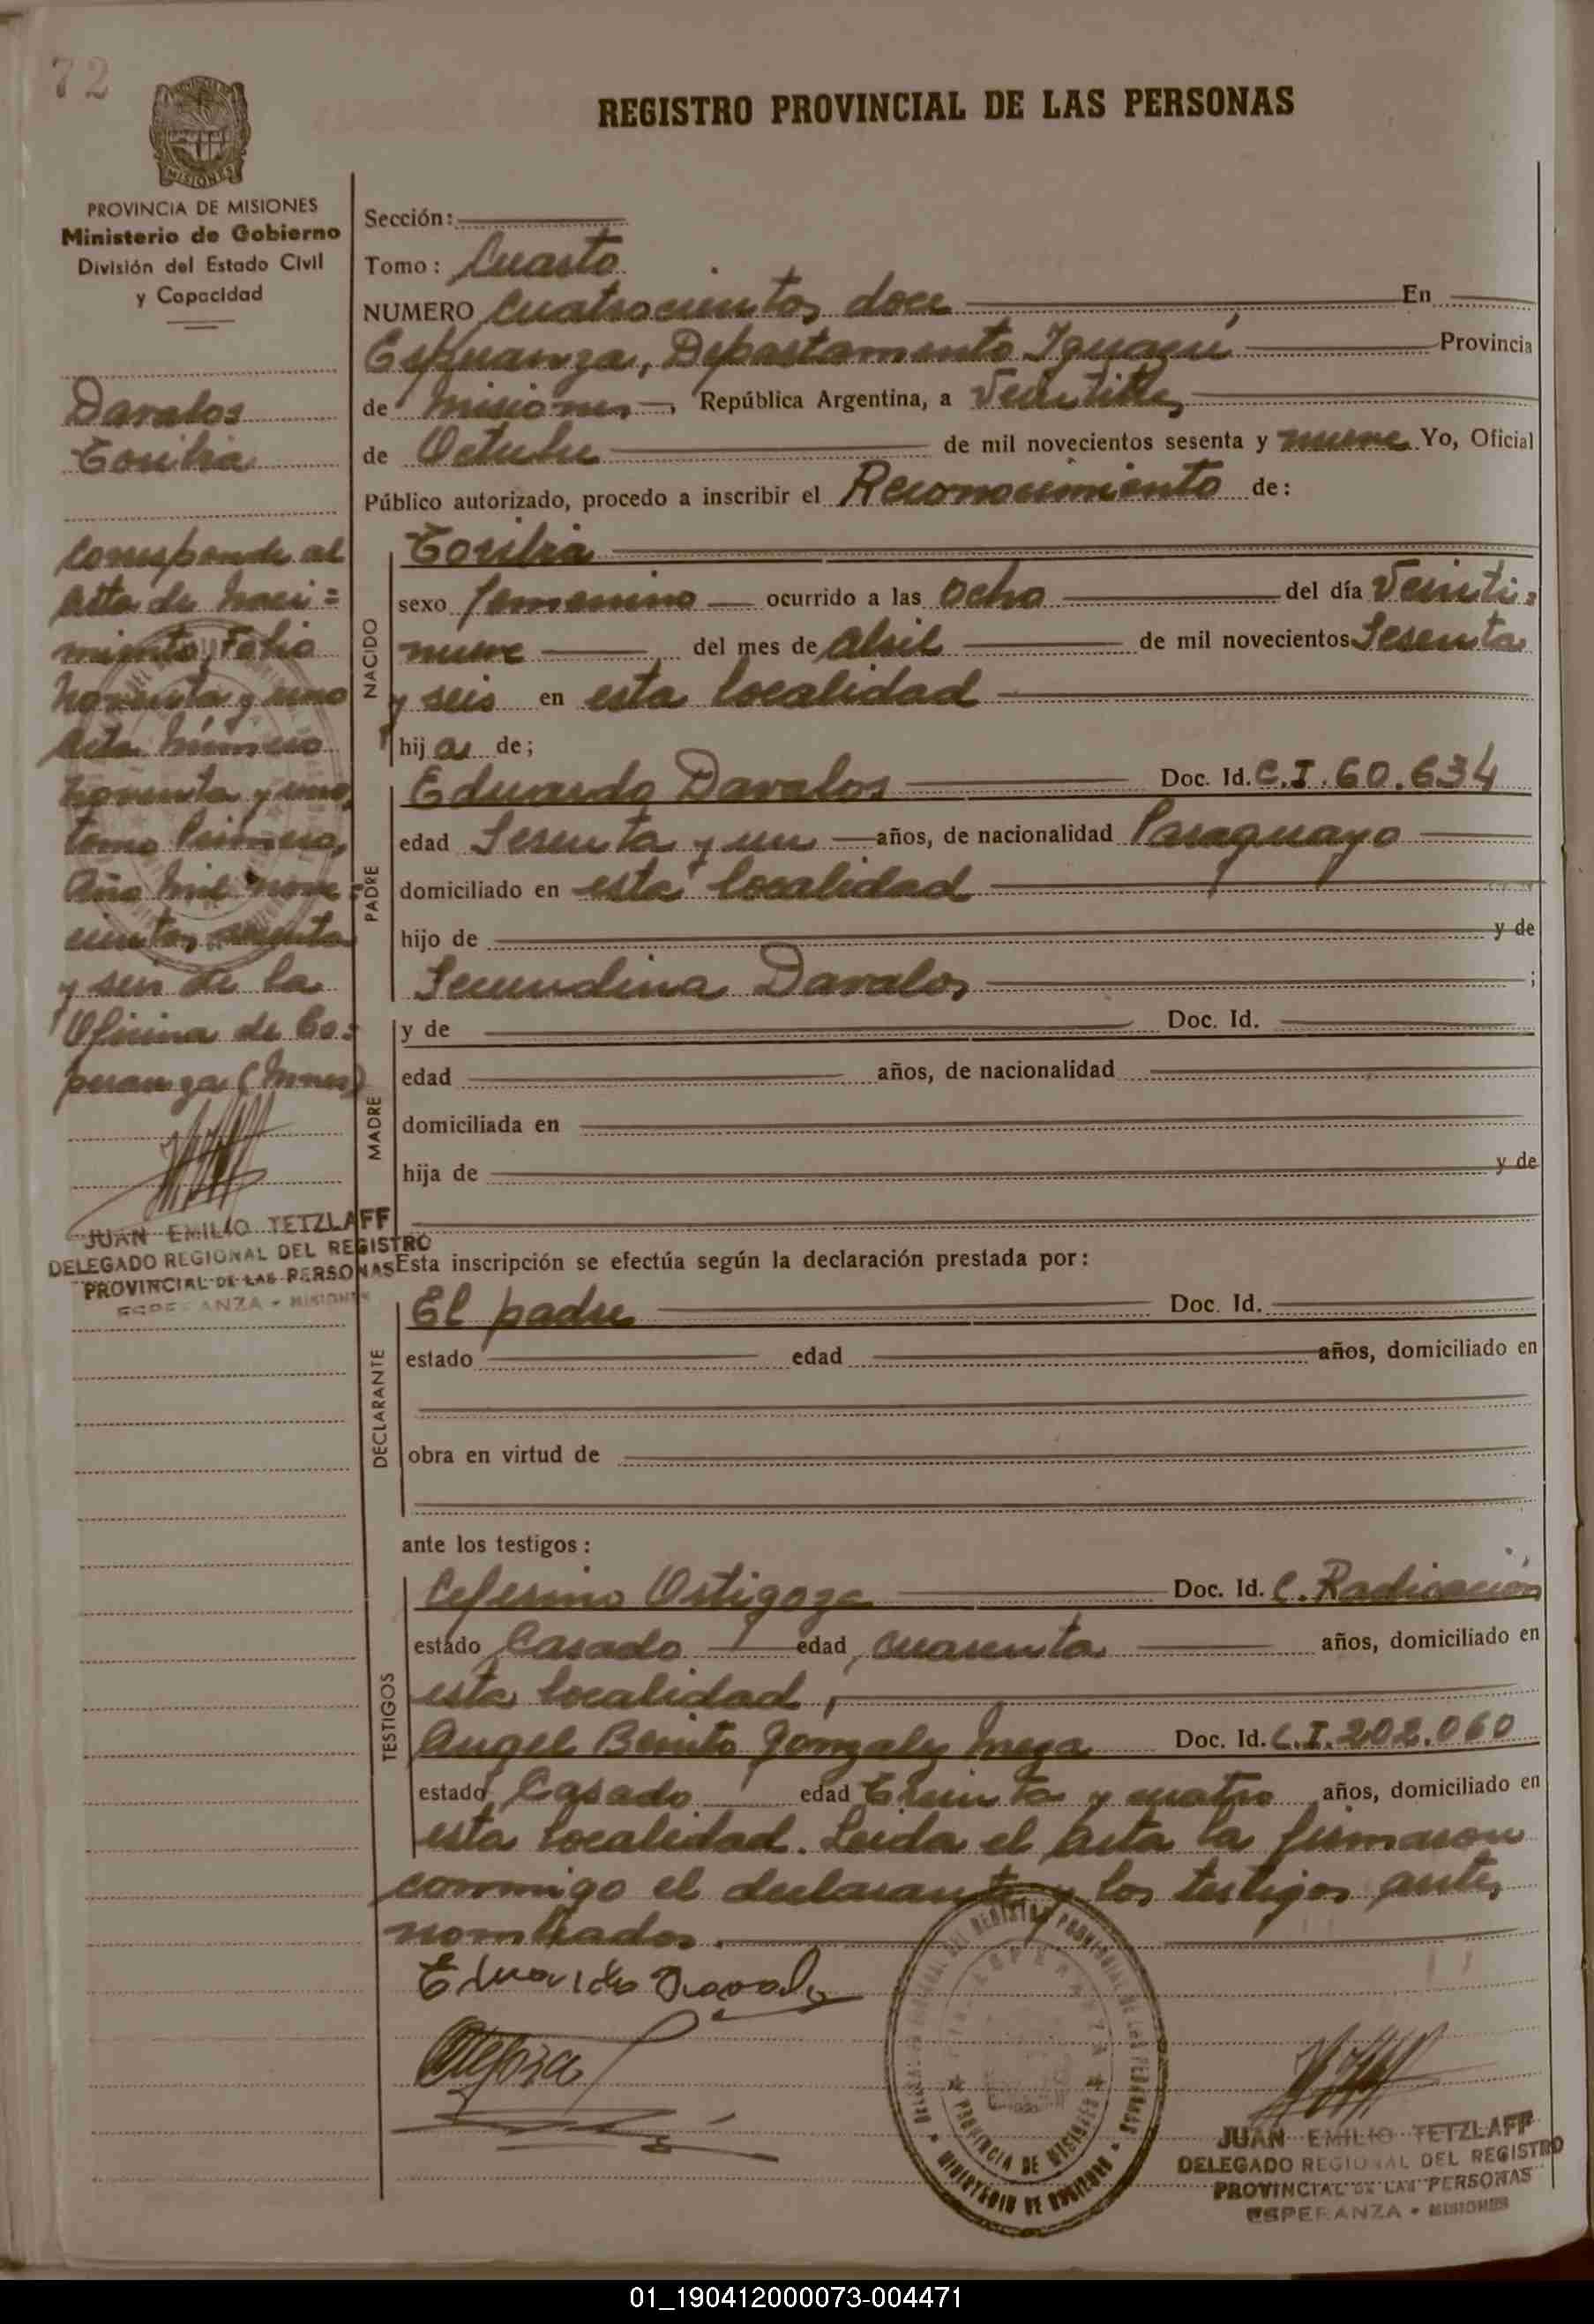 72
REGISTRO PROVINCIAL DE LAS PERSONAS
MISIONES
PROVINCIA DE MISIONES
Ministerio de Gobierno
División del Estado Civil
y Capacidad
Davalos
Corresponde al
Acta de Naci=
miento, Folio
noventa y uno
Acta Número
noventa y uno,
tomo Primero,
Año mil nove=
cientos sesenta
y seis de la
Oficina de Es=
peranza (Mnes)
JUAN EMILIO TETZLAFF
DELEGADO REGIONAL DEL REGISTRO
PROVINCIAL DE LAS PERSONAS
ESPERANZA - MISIONES
Sección:
Tomo: Cuarto
NUMERO Cuatrocientos doce En
Esperanza, Departamento Iguazú Provincia
de Misiones, República Argentina, a
de Octubre de mil novecientos sesenta y nueve Yo, Oficial
Público autorizado, procedo a inscribir el Reconocimiento de:
NACIDO
sexo femenino ocurrido a las ocho del día Veinti=
nueve del mes de Abril de mil novecientos Sesenta
y seis en esta localidad
hija de;
PADRE
Eduardo Davalos Doc. Id. C.I. 60.634
edad Sesenta y un años, de nacionalidad Paraguayo
domiciliado en esta localidad
hijo de y de
Secundina Davalos ;
MADRE
y de Doc. Id.
edad años, de nacionalidad
domiciliada en
hija de y de
Esta inscripción se efectúa según la declaración prestada por:
DECLARANTE
El padre Doc. Id.
estado edad años, domiciliado en
obra en virtud de
ante los testigos:
TESTIGOS
Ceferino Ortigoza Doc. Id. C. Radicación
estado Casado edad cuarenta años, domiciliado en
esta localidad,
Angel Benito Gonzalez Meza Doc. Id. C.I. 202.060
estado Casado edad Treinta y cuatro años, domiciliado en
esta localidad. Leida el Acta la firmaron
conmigo el declarante y los testigos ante,
nombrados.
Eduardo Davalos
DELEGADO REGIONAL DEL REGISTRO PROVINCIAL DE LAS PERSONAS
ESPERANZA
PROVINCIA DE MISIONES
MINISTERIO DE GOBIERNO
JUAN EMILIO TETZLAFF
DELEGADO REGIONAL DEL REGISTRO
PROVINCIAL DE LAS PERSONAS
ESPERANZA - MISIONES
01_190412000073-004471